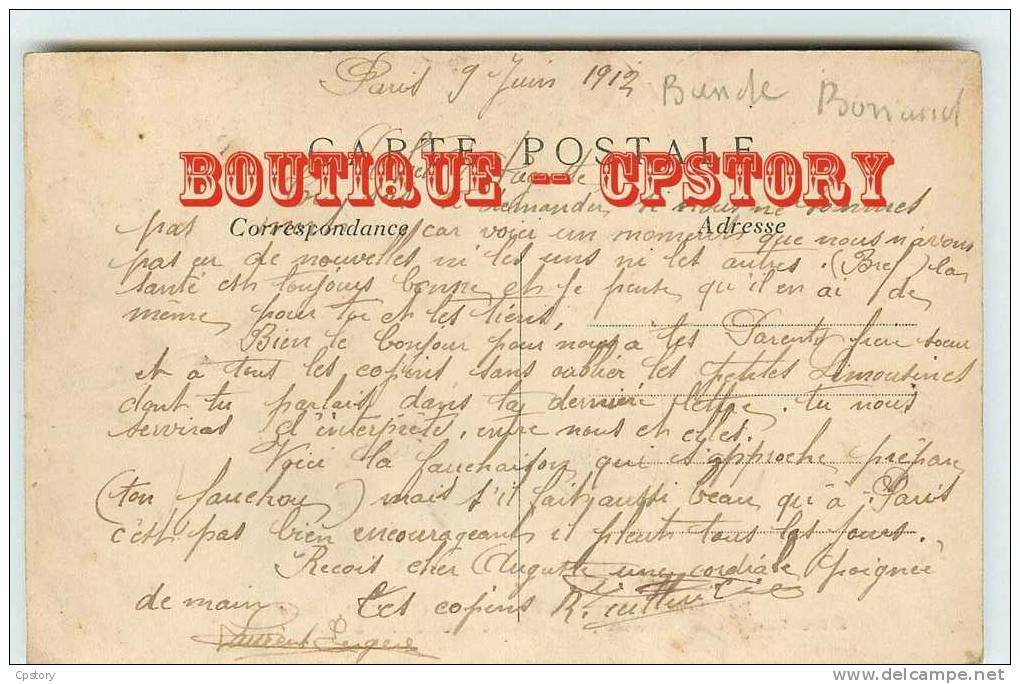 Paris 9 Juin 1912
CARTE POSTALE
BOUTIQUE -- CPSTORY
demander si nous ne sommes
Correspondance Adresse
pas car voici un moment que nous n'avons
pas eu de nouvelles ni les uns ni les autres. (Bref) la
santé est toujours bonne et je pense qu'il en ai de
même pour toi et les tiens,
Bien le bonjour pour nous a tes Parents soeur
et a tous les copins sans oublier les petites Limousines
dont tu parlais dans ta dernière lettre. tu nous
serviras d'interprète, entre nous et elles.
Voici la fauchaison qui s'approche prépare
(ton fauchou) mais s'il fait aussi beau qu'à Paris
c'est pas bien encourageant il pleut tous les jours.
Recois cher Auguste une cordiale poignée
de main. Tes copins R.
Laurent Eugène
Cpstory
delcampe.net